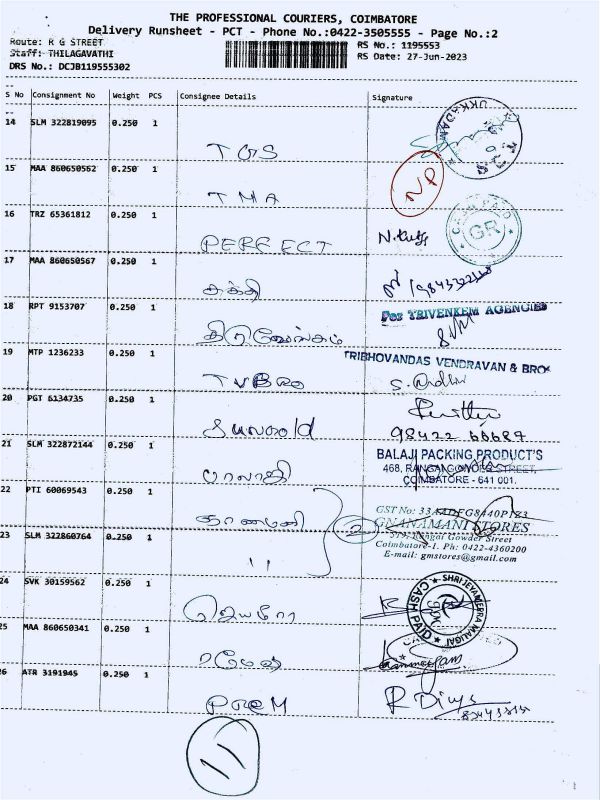 THE PROFESSIONAL COURIERS, COIMBATORE
Delivery Runsheet - PCT - Phone No.:0422-3505555 - Page No.:2
Route: R G STREET
RS No.: 1195553
Staff: THILAGAVATHI
RS Date: 27-Jun-2023
DRS No.: DCJB119555302
S No Consignment No Weight PCS Consignee Details Signature
14 SLM 322819095 0.250 1
UKKADAM
TGS
15 MAA 860650562 0.250 1
NP
TMA
16 TRZ 65361812 0.250 1
CASH PAID
GR
PERFECT
17 MAA 860650567 0.250 1
சக்தி
18 RPT 9153707 0.250 1
For TRIVENKEM AGENCIES
திருவேங்கடம்
19 MTP 1236233 0.250 1
TRIBHOVANDAS VENDRAVAN & BRO
TVBRO
20 PGT 6134735 0.250 1
98422 60687
21 SLM 322872144 0.250 1
BALAJI PACKING PRODUCT'S
468, RANGAI GOWDER STREET,
COIMBATORE - 641 001.
பாலாஜி
22 PTI 60069543 0.250 1
GST No:
ஞானமணி
2
GNANAMANI STORES
23 SLM 322860764 0.250 1
579, Rangai Gowder Street
Coimbatore-1. Ph: 0422-4360200
E-mail: gmstores@gmail.com
"
24 SVK 30159562 0.250 1
SHRI JEYAMEERA MALIGAI
CASH PAID
25 MAA 860650341 0.250 1
ரமேஷ்
26 ATR 3191945 0.250 1
PREM
R Divya
11